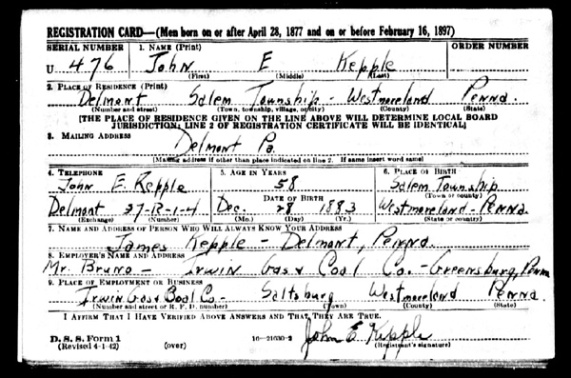 REGISTRATION CARD—(Men born on or after April 28, 1877 and on or before February 16, 1897)
SERIAL NUMBER 1. NAME (Print) ORDER NUMBER
U 476 John E Kepple
(First) (Middle) (Last)
2. PLACE OF RESIDENCE (Print)
Delmont Salem Township - Westmoreland Penna.
(Number and street) (Town, township, village, or city) (County) (State)
[THE PLACE OF RESIDENCE GIVEN ON THE LINE ABOVE WILL DETERMINE LOCAL BOARD
JURISDICTION; LINE 2 OF REGISTRATION CERTIFICATE WILL BE IDENTICAL]
3. MAILING ADDRESS
Delmont Pa.
[Mailing address if other than place indicated on line 2. If same insert word same]
4. TELEPHONE 5. AGE IN YEARS 6. PLACE OF BIRTH
John E. Kepple 58 Salem Township
DATE OF BIRTH (Town or county)
Delmont 27-R-1-4 Dec. 28 1883 Westmoreland - Penna.
(Exchange) (Number) (Mo.) (Day) (Yr.) (State or country)
7. NAME AND ADDRESS OF PERSON WHO WILL ALWAYS KNOW YOUR ADDRESS
James Kepple - Delmont, Penna.
8. EMPLOYER'S NAME AND ADDRESS
Mr. Bruno - Irwin Gas & Coal Co. - Greensburg, Penna
9. PLACE OF EMPLOYMENT OR BUSINESS
Irwin Gas & Coal Co - Saltsburg Westmoreland Penna.
(Number and street or R. F. D. number) (Town) (County) (State)
I AFFIRM THAT I HAVE VERIFIED ABOVE ANSWERS AND THAT THEY ARE TRUE.
D. S. S. Form 1 John E Kepple
(Revised 4-1-42) (over) 16—21630-2 (Registrant's signature)